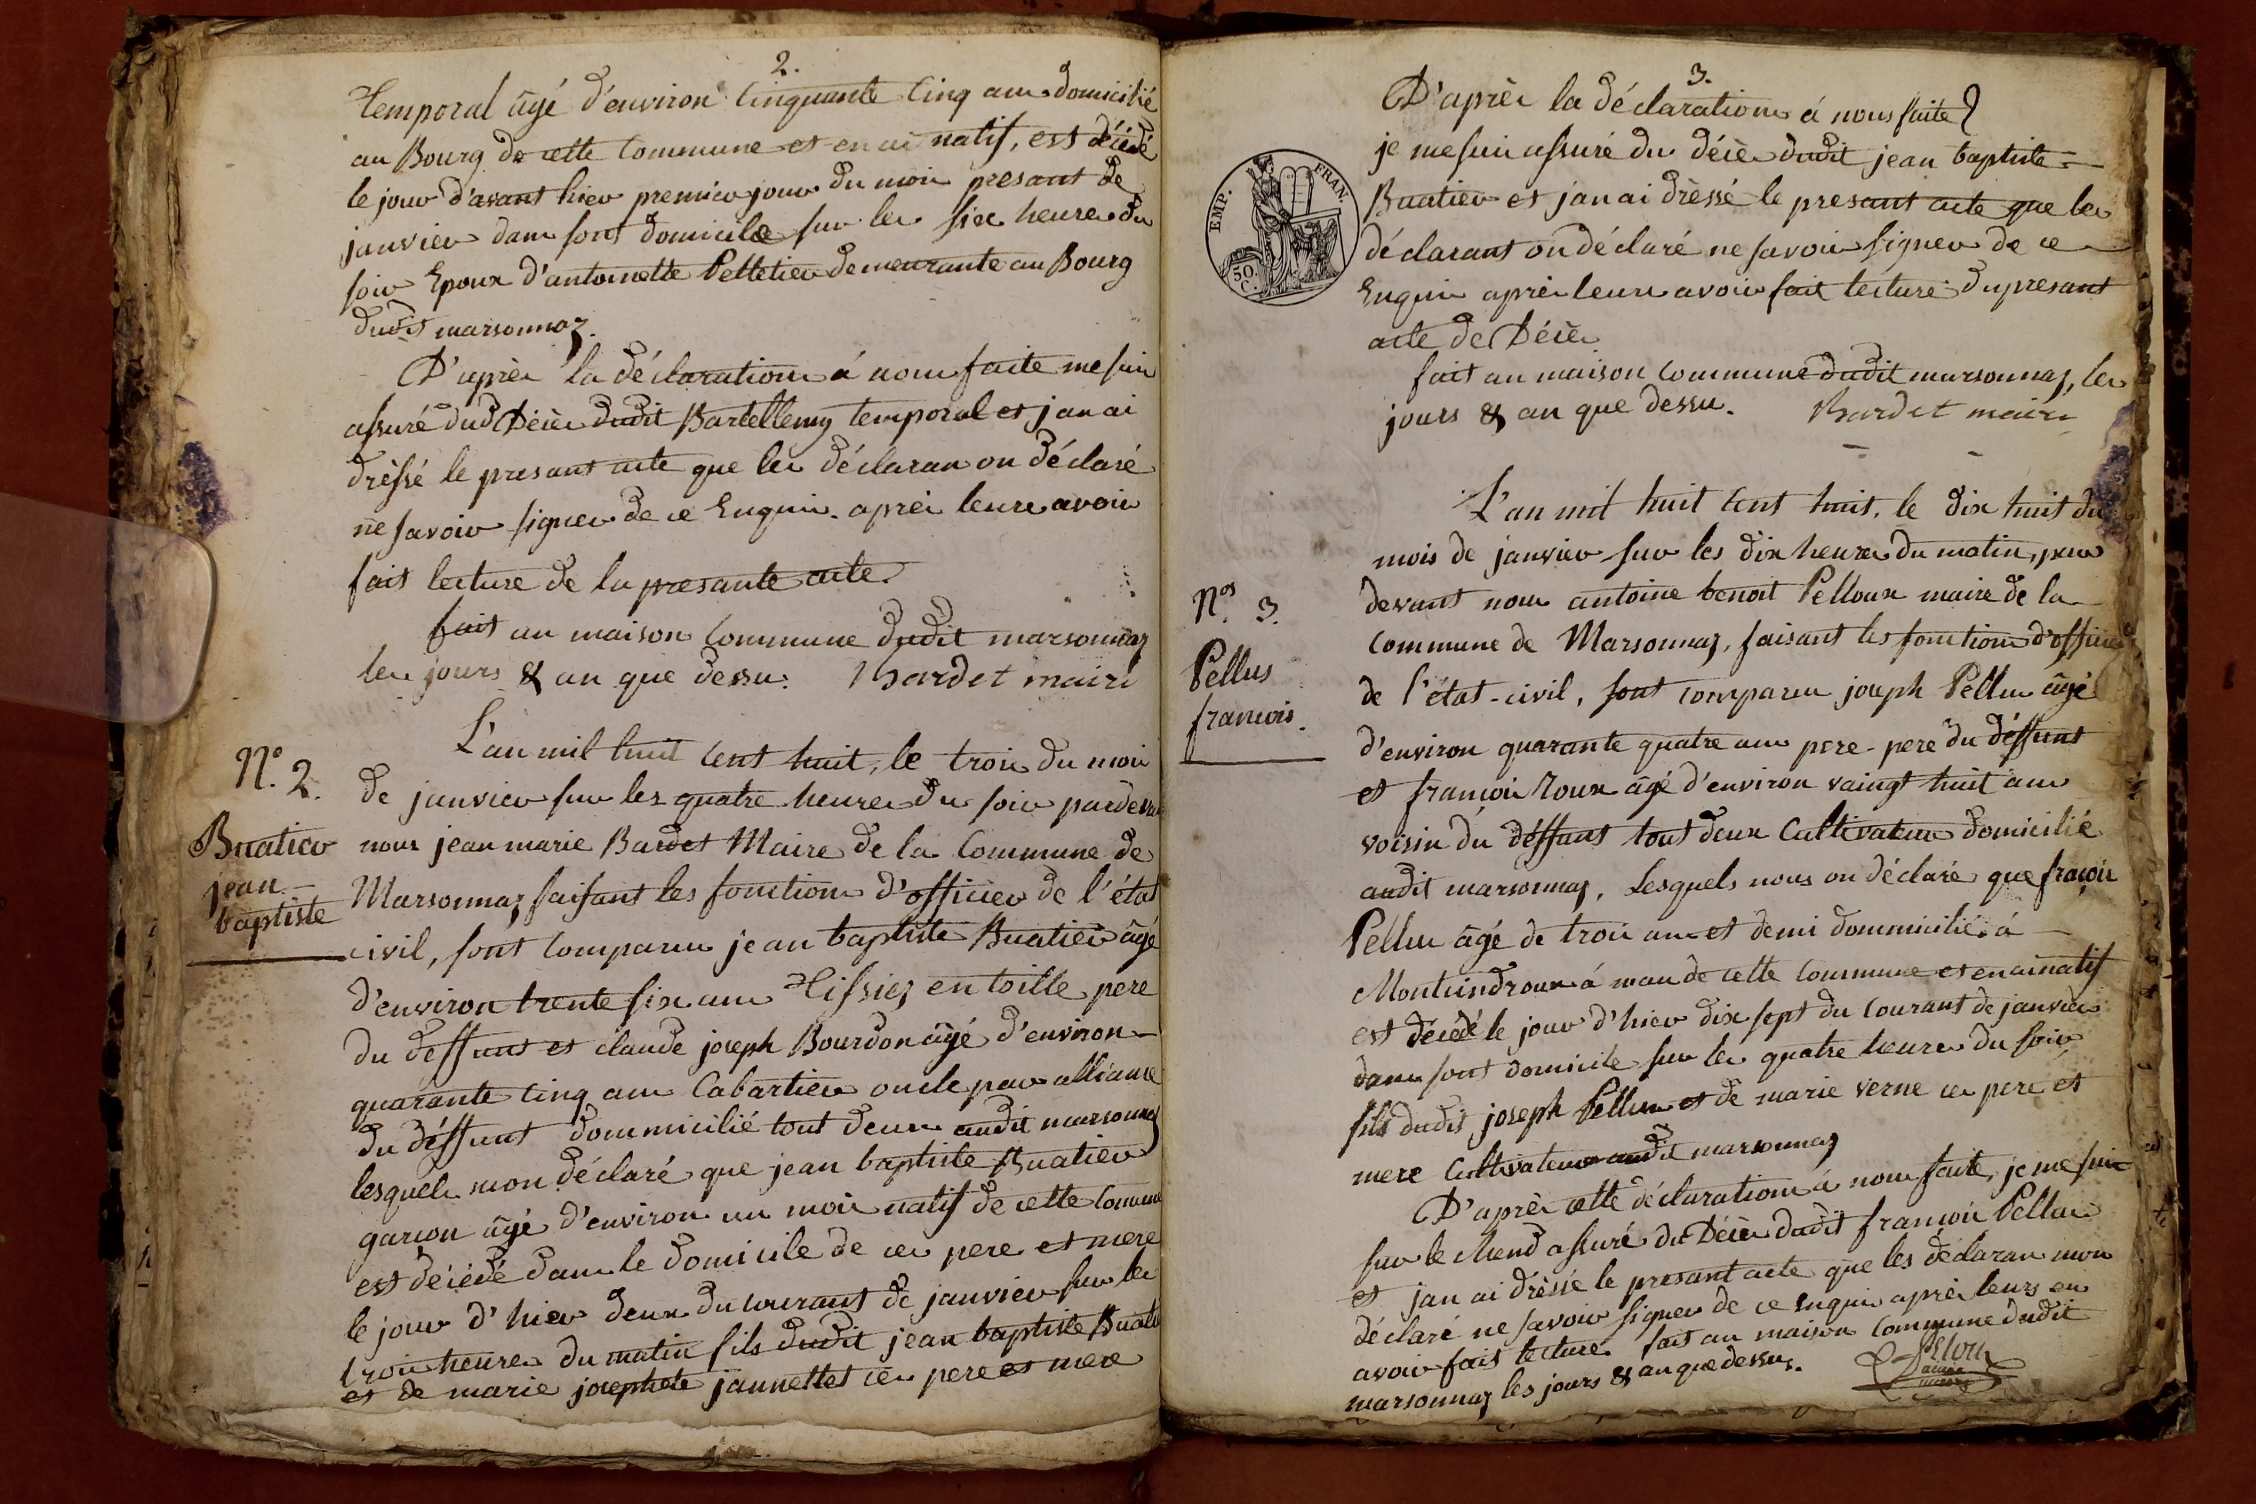 2.
Temporal âgé d'environ Cinquante Cinq ans domicilié
au Bourg de cette Commune et en ai natif, est décédé
le jour d'avant hier premier jour du mois presant de
janvier dans sont domicile sur les six heures du
soir Epoux d'antoinette Pelletier demeurante au Bourg
dudit marsonnaz.
D'après la déclarations á nous faite me suis
assuré dud Décès dudit Bartellemy temporal et jan ai
drèssé le presant acte que les déclaran on déclaré
ne savoir signer de ce Enquis. après leure avoir
fait lecture de la presante acte.
fait an maison Commune dudit marsonnaz
les jours & an que dessus. Bardet maire
N.° 2.
Buatier
jean
baptiste
L'an mil huit Cent huit, le trois du mois
de janvier sur les quatre heures du soir pardevan
nous jean marie Bardet Maire de la Commune de
Marsonnaz faisant les fonctions d'officier de l'état
civil, sont Comparus jean baptiste Buatier âgé
d'environ trente six ans Tissiez en toille pere
du deffunt et claude joseph Bourdon âgé d'environ
quarante Cinq ans Cabartier oncle par alliance
du déffunt dommicilié tout deux audit marsonnaz
lesquels mon déclaré que jean baptiste Buatier
garçon âgé d'environ un mois natif de cette Commune
est décédé dans le domicile de ces pere et mere
le jour d'hier deux du courant de janvier sur les
trois heures du matin fils dudit jean baptiste Buatie
et de marie josephete jannettet ces pere et mere
3.
D'après la déclarations á nous faite
je me suis assuré du décès dudit jean baptiste
Buatier et jan ai drèssé le presant acte que les
déclarant on déclaré ne savoir signer de ce
Enquis après leure avoir fait lecture du presant
acte de Décès.
fait an maison Commune dudit marsonnaz, les
jours & an que dessus. Bardet maire
EMP. FRAN.
50.
C.
N.os 3.
Pellus
francois.
L'an mil huit Cent huit, le dix huit du
mois de janvier sur les dix heures du matin, par
devant nous antoine benoit Pelloux maire de la
Commune de Marsonnaz, faisant les fonctions d'officier
de l'état-civil, sont comparus joseph Pellus âgé
d'environ quarante quatre ans pere-pere du déffunt
et françois roux âgé d'environ vaingt huit ans
voisin du déffunt tout deux Cultivateurs domicilié
audit marsonnaz, Lesquels nous on déclaré que fraçois
Pellus âgé de trois ans et demi dommicilié á
Montcindroux á mau de cette Commune et en ai natif
est décédé le jour d'hier dix sept du Courant de janvier
dans sont domicile sur les quatre heures du soir
fils dudit joseph Pellus et de marie verne ces pere et
mere Cultivateurs audit marsonnaz
D'après cette déclarations á nous faite, je me suis
sur le chend assuré du Décès dudit françois Pellus
et jan ai drèssé le presant acte que les déclaran mon
déclaré ne savoir signer de ce Enquis après leurs en
avoir fait lecture. fait an maison Commune dudit
marsonnaz les jours & an que dessus.